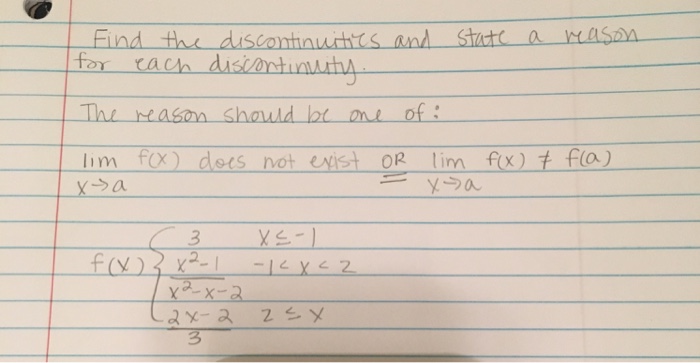 Find the discontinuities and state a reason
for each discontinuity.
The reason should be one of:
lim f(x) does not exist OR lim f(x) ≠ f(a)
x→a x→a
f(x) { 3 x≤-1
x²-1 -1<x<2
x²-x-2
2x-2 2≤x
3